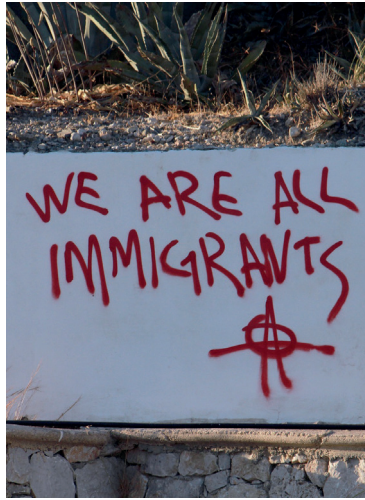 WE ARE ALL
IMMIGRANTS
Ⓐ